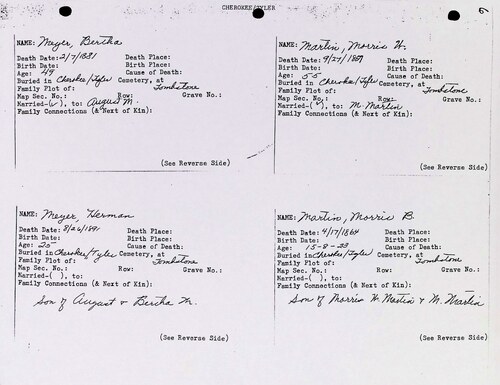 CHEROKEE/TYLER
NAME: Meyer, Bertha
Death Date: 2/7/1881 Death Place:
Birth Date: Birth Place:
Age: 49 Cause of Death:
Buried in Cherokee/Tyler Cemetery, at
Family Plot of: Tombstone
Map Sec. No.: Row: Grave No.:
Married-(✓), to: August M.
Family Connections (& Next of Kin):
(See Reverse Side)
NAME: Martin, Morris H.
Death Date: 9/27/ Death Place:
Birth Date: Birth Place:
Age: 55 Cause of Death:
Buried in Cherokee/Tyler Cemetery, at
Family Plot of: Tombstone
Map Sec. No.: Row: Grave No.:
Married-(✓), to: M. Martin
Family Connections (& Next of Kin):
(See Reverse Side)
NAME: Meyer, Herman
Death Date: 8/26/1891 Death Place:
Birth Date: Birth Place:
Age: 20 Cause of Death:
Buried in Cherokee/Tyler Cemetery, at
Family Plot of: Tombstone
Map Sec. No.: Row: Grave No.:
Married-( ), to:
Family Connections (& Next of Kin):
Son of August & Bertha M.
(See Reverse Side)
NAME: Martin, Morris B.
Death Date: 4/17/1864 Death Place:
Birth Date: Birth Place:
Age: 15-8-23 Cause of Death:
Buried in Cherokee/Tyler Cemetery, at
Family Plot of: Tombstone
Map Sec. No.: Row: Grave No.:
Married-( ), to:
Family Connections (& Next of Kin):
Son of Morris H. Martin & M. Martin
(See Reverse Side)